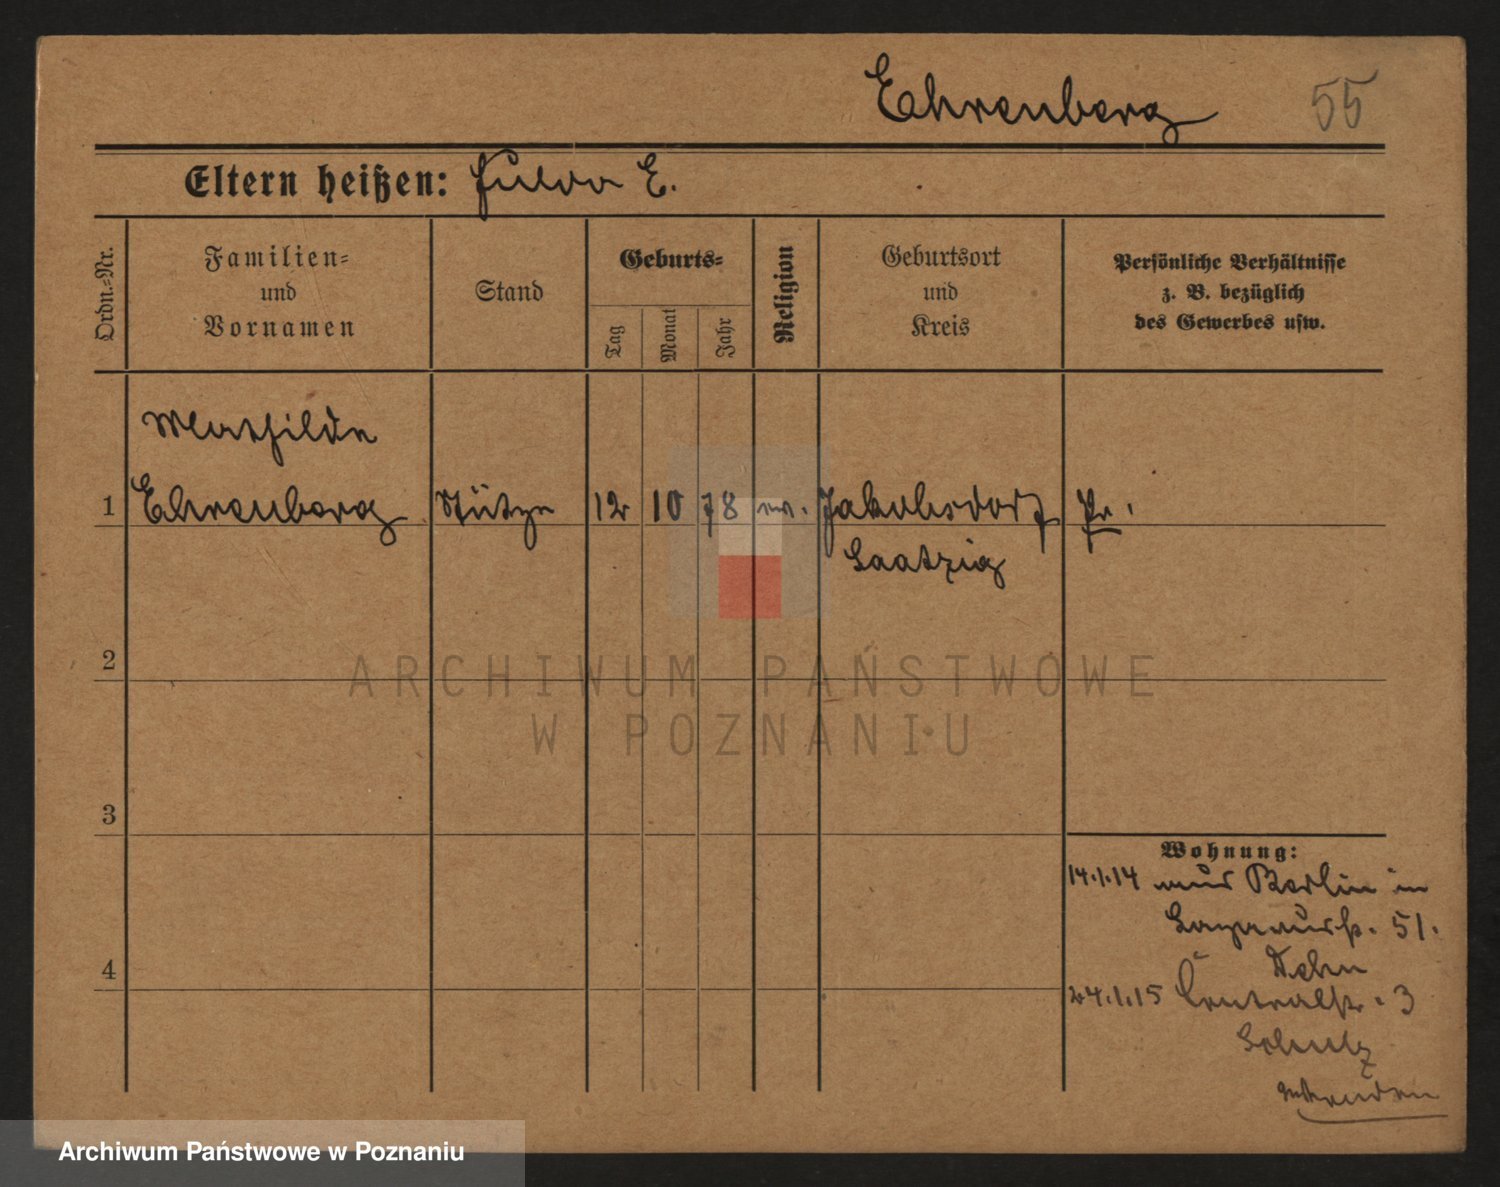 Ehrenberg 55
Eltern heißen: Fulda E.
Ordn.=Nr.
Familien=
und
Vornamen
Stand
Geburts=
Tag
Monat
Jahr
Religion
Geburtsort
und
Kreis
Persönliche Verhältnisse
z. B. bezüglich
des Gewerbes usw.
Mathilde
1 Ehrenberg Stütze 12 10 78 ev. Jakobsdorf Pr.
Saatzig
2
ARCHIWUM PAŃSTWOWE
W POZNANIU
3
Wohnung:
14.1.14 aus Berlin in
51.
Dehn
4
24.1.15 Centralstr. 3
Schulz
Archiwum Państwowe w Poznaniu